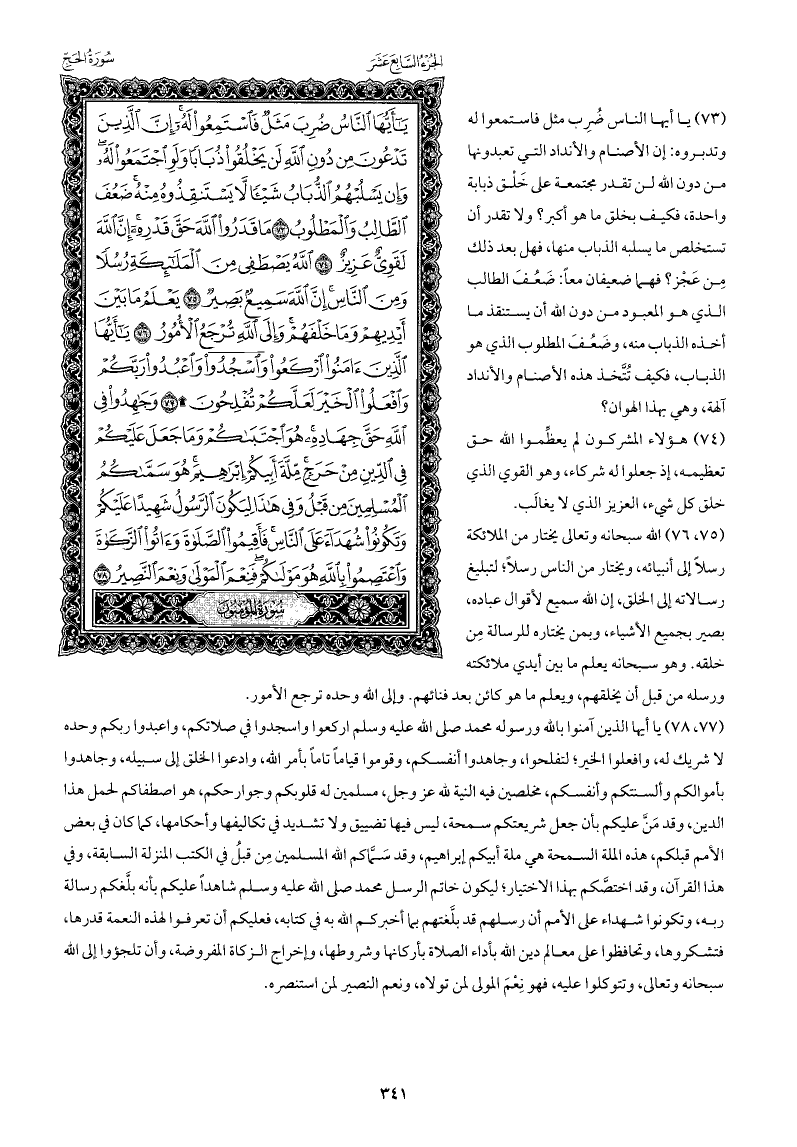 الجزء السابع عشر
سورة الحج
يَٰٓأَيُّهَا ٱلنَّاسُ ضُرِبَ مَثَلٞ فَٱسۡتَمِعُواْ لَهُۥٓۚ إِنَّ ٱلَّذِينَ
تَدۡعُونَ مِن دُونِ ٱللَّهِ لَن يَخۡلُقُواْ ذُبَابٗا وَلَوِ ٱجۡتَمَعُواْ لَهُۥۖ
وَإِن يَسۡلُبۡهُمُ ٱلذُّبَابُ شَيۡـٔٗا لَّا يَسۡتَنقِذُوهُ مِنۡهُۚ ضَعُفَ
ٱلطَّالِبُ وَٱلۡمَطۡلُوبُ ٧٣ مَا قَدَرُواْ ٱللَّهَ حَقَّ قَدۡرِهِۦٓۚ إِنَّ ٱللَّهَ
لَقَوِيٌّ عَزِيزٌ ٧٤ ٱللَّهُ يَصۡطَفِي مِنَ ٱلۡمَلَٰٓئِكَةِ رُسُلٗا
وَمِنَ ٱلنَّاسِۚ إِنَّ ٱللَّهَ سَمِيعُۢ بَصِيرٞ ٧٥ يَعۡلَمُ مَا بَيۡنَ
أَيۡدِيهِمۡ وَمَا خَلۡفَهُمۡۚ وَإِلَى ٱللَّهِ تُرۡجَعُ ٱلۡأُمُورُ ٧٦ يَٰٓأَيُّهَا
ٱلَّذِينَ ءَامَنُواْ ٱرۡكَعُواْ وَٱسۡجُدُواْ وَٱعۡبُدُواْ رَبَّكُمۡ
وَٱفۡعَلُواْ ٱلۡخَيۡرَ لَعَلَّكُمۡ تُفۡلِحُونَ۩ ٧٧ وَجَٰهِدُواْ فِي
ٱللَّهِ حَقَّ جِهَادِهِۦۚ هُوَ ٱجۡتَبَىٰكُمۡ وَمَا جَعَلَ عَلَيۡكُمۡ
فِي ٱلدِّينِ مِنۡ حَرَجٖۚ مِّلَّةَ أَبِيكُمۡ إِبۡرَٰهِيمَۚ هُوَ سَمَّىٰكُمُ
ٱلۡمُسۡلِمِينَ مِن قَبۡلُ وَفِي هَٰذَا لِيَكُونَ ٱلرَّسُولُ شَهِيدًا عَلَيۡكُمۡ
وَتَكُونُواْ شُهَدَآءَ عَلَى ٱلنَّاسِۚ فَأَقِيمُواْ ٱلصَّلَوٰةَ وَءَاتُواْ ٱلزَّكَوٰةَ
وَٱعۡتَصِمُواْ بِٱللَّهِ هُوَ مَوۡلَىٰكُمۡۖ فَنِعۡمَ ٱلۡمَوۡلَىٰ وَنِعۡمَ ٱلنَّصِيرُ ٧٨
سورة المؤمنون
(٧٣) يا أيها الناس ضُرِب مثل فاستمعوا له
وتدبروه: إن الأصنام والأنداد التي تعبدونها
من دون الله لن تقدر مجتمعة على خَلْق ذبابة
واحدة، فكيف بخلق ما هو أكبر؟ ولا تقدر أن
تستخلص ما يسلبه الذباب منها، فهل بعد ذلك
مِن عَجْز؟ فهما ضعيفان معاً: ضَعُفَ الطالب
الذي هو المعبود من دون الله أن يستنقذ ما
أخذه الذباب منه، وضَعُفَ المطلوب الذي هو
الذباب، فكيف تُتَّخذ هذه الأصنام والأنداد
آلهة، وهي بهذا الهوان؟
(٧٤) هؤلاء المشركون لم يعظِّموا الله حق
تعظيمه، إذ جعلوا له شركاء، وهو القوي الذي
خلق كل شيء، العزيز الذي لا يغالَب.
(٧٥، ٧٦) الله سبحانه وتعالى يختار من الملائكة
رسلاً إلى أنبيائه، ويختار من الناس رسلاً؛ لتبليغ
رسالاته إلى الخلق، إن الله سميع لأقوال عباده،
بصير بجميع الأشياء، وبمن يختاره للرسالة مِن
خلقه. وهو سبحانه يعلم ما بين أيدي ملائكته
ورسله من قبل أن يخلقهم، ويعلم ما هو كائن بعد فنائهم. وإلى الله وحده ترجع الأمور.
(٧٧، ٧٨) يا أيها الذين آمنوا بالله ورسوله محمد صلى الله عليه وسلم اركعوا واسجدوا في صلاتكم، واعبدوا ربكم وحده
لا شريك له، وافعلوا الخير؛ لتفلحوا، وجاهدوا أنفسكم، وقوموا قياماً تاماً بأمر الله، وادعوا الخلق إلى سبيله، وجاهدوا
بأموالكم وألسنتكم وأنفسكم، مخلصين فيه النية لله عز وجل، مسلمين له قلوبكم وجوارحكم، هو اصطفاكم لحمل هذا
الدين، وقد مَنَّ عليكم بأن جعل شريعتكم سمحة، ليس فيها تضييق ولا تشديد في تكاليفها وأحكامها، كما كان في بعض
الأمم قبلكم، هذه الملة السمحة هي ملة أبيكم إبراهيم، وقد سَمَّاكم الله المسلمين مِن قبلُ في الكتب المنزلة السابقة، وفي
هذا القرآن، وقد اختصَّكم بهذا الاختيار؛ ليكون خاتم الرسل محمد صلى الله عليه وسلم شاهداً عليكم بأنه بلَّغكم رسالة
ربه، وتكونوا شهداء على الأمم أن رسلهم قد بلَّغتهم بما أخبركم الله به في كتابه، فعليكم أن تعرفوا لهذه النعمة قدرها،
فتشكروها، وتحافظوا على معالم دين الله بأداء الصلاة بأركانها وشروطها، وإخراج الزكاة المفروضة، وأن تلجؤوا إلى الله
سبحانه وتعالى، وتتوكلوا عليه، فهو نِعْمَ المولى لمن تولاه، ونعم النصير لمن استنصره.
٣٤١